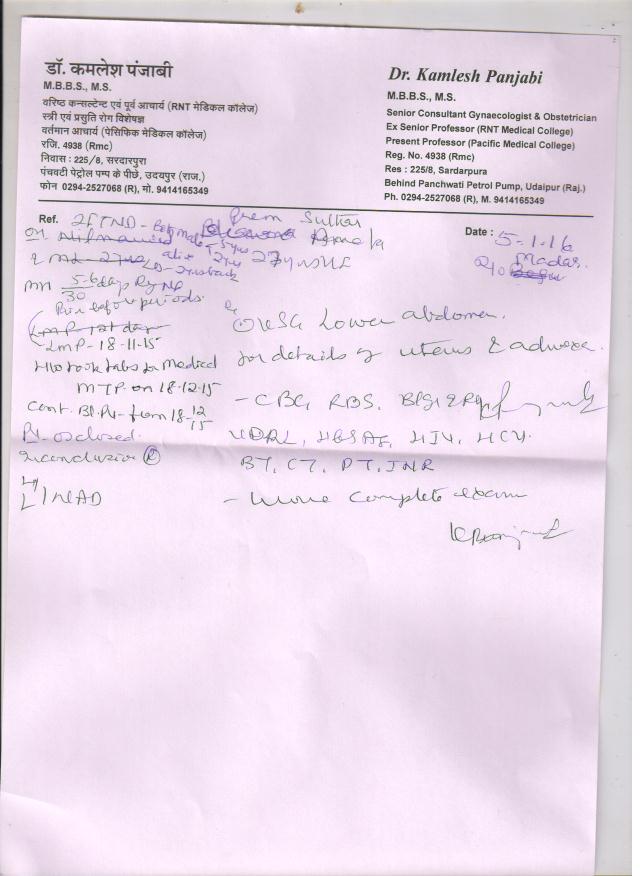 डॉ. कमलेश पंजाबी
M.B.B.S., M.S.
वरिष्ठ कन्सल्टेन्ट एवं पूर्व आचार्य (RNT मेडिकल कॉलेज)
स्त्री एवं प्रसुति रोग विशेषज्ञ
वर्तमान आचार्य (पेसिफिक मेडिकल कॉलेज)
रजि. 4938 (Rmc)
निवास : 225/8, सरदारपुरा
पंचवटी पेट्रोल पम्प के पीछे, उदयपुर (राज.)
फोन 0294-2527068 (R), मो. 9414165349
Dr. Kamlesh Panjabi
M.B.B.S., M.S.
Senior Consultant Gynaecologist & Obstetrician
Ex Senior Professor (RNT Medical College)
Present Professor (Pacific Medical College)
Reg. No. 4938 (Rmc)
Res : 225/8, Sardarpura
Behind Panchwati Petrol Pump, Udaipur (Raj.)
Ph. 0294-2527068 (R), M. 9414165349
Ref. 2FTND - Both male
Prem Suthar
Date : 5-1-16
27 yrs
Madar
5-6 days
30
Pain before periods
LMP - 18-11-15
H/o took tabs for Medical
MTP on 18-12-15
Cont. Bl. PV - from 18-12
15
inconclusive
NAD
USG Lower abdomen.
for details of uterus & adnexa.
- CBC, RBS,
VDRL, HBSAg, HIV, HCV.
BT, CT, PT, INR
- Urine complete exam